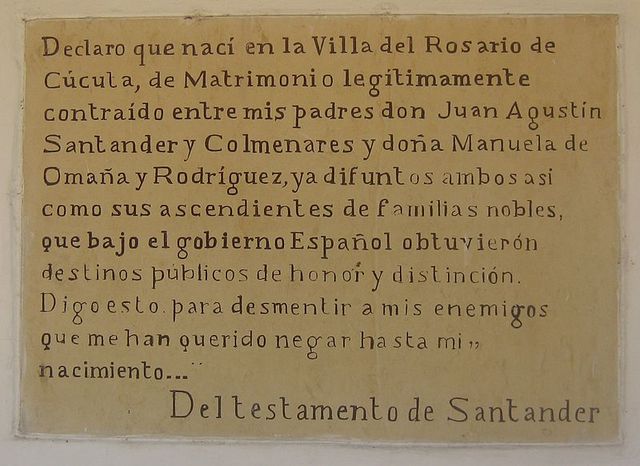 Declaro que nací en la Villa del Rosario de
Cúcuta, de Matrimonio legítimamente
contraído entre mis padres don Juan Agustín
Santander y Colmenares y doña Manuela de
Omaña y Rodríguez, ya difuntos ambos así
como sus ascendientes de familias nobles,
que bajo el gobierno Español obtuvierón
destinos públicos de honor y distinción.
Digo esto. para desmentir a mis enemigos
que me han querido negar hasta mi ,,
nacimiento..."
Del testamento de Santander